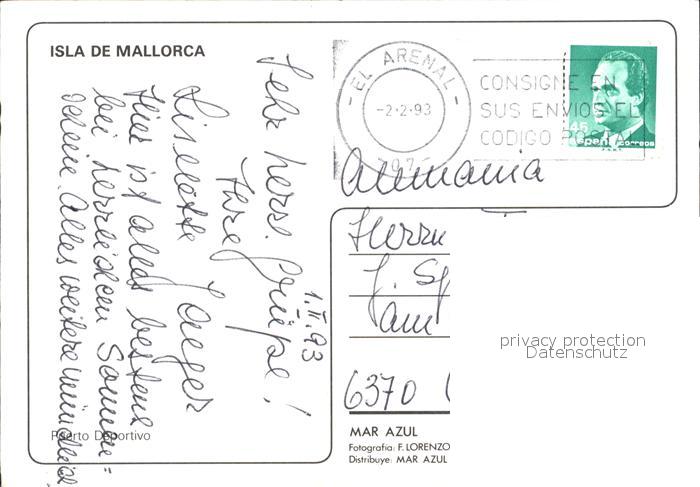 ISLA DE MALLORCA
1.II.93
Sehr herzl. Grüße!
Ihre
Liselotte Langer
Hier ist alles bestens
bei herrlichem Sonnen=
schein. Alles weitere mündlich
Puerto Deportivo
- EL ARENAL -
-2-2-93
CONSIGNE EN
SUS ENVIOS EL
CODIGO POSTAL
45
España correos
Alemania
Herrn
J. Sp
am
6370
privacy protection
Datenschutz
MAR AZUL
Fotografia: F. LORENZO
Distribuye: MAR AZUL